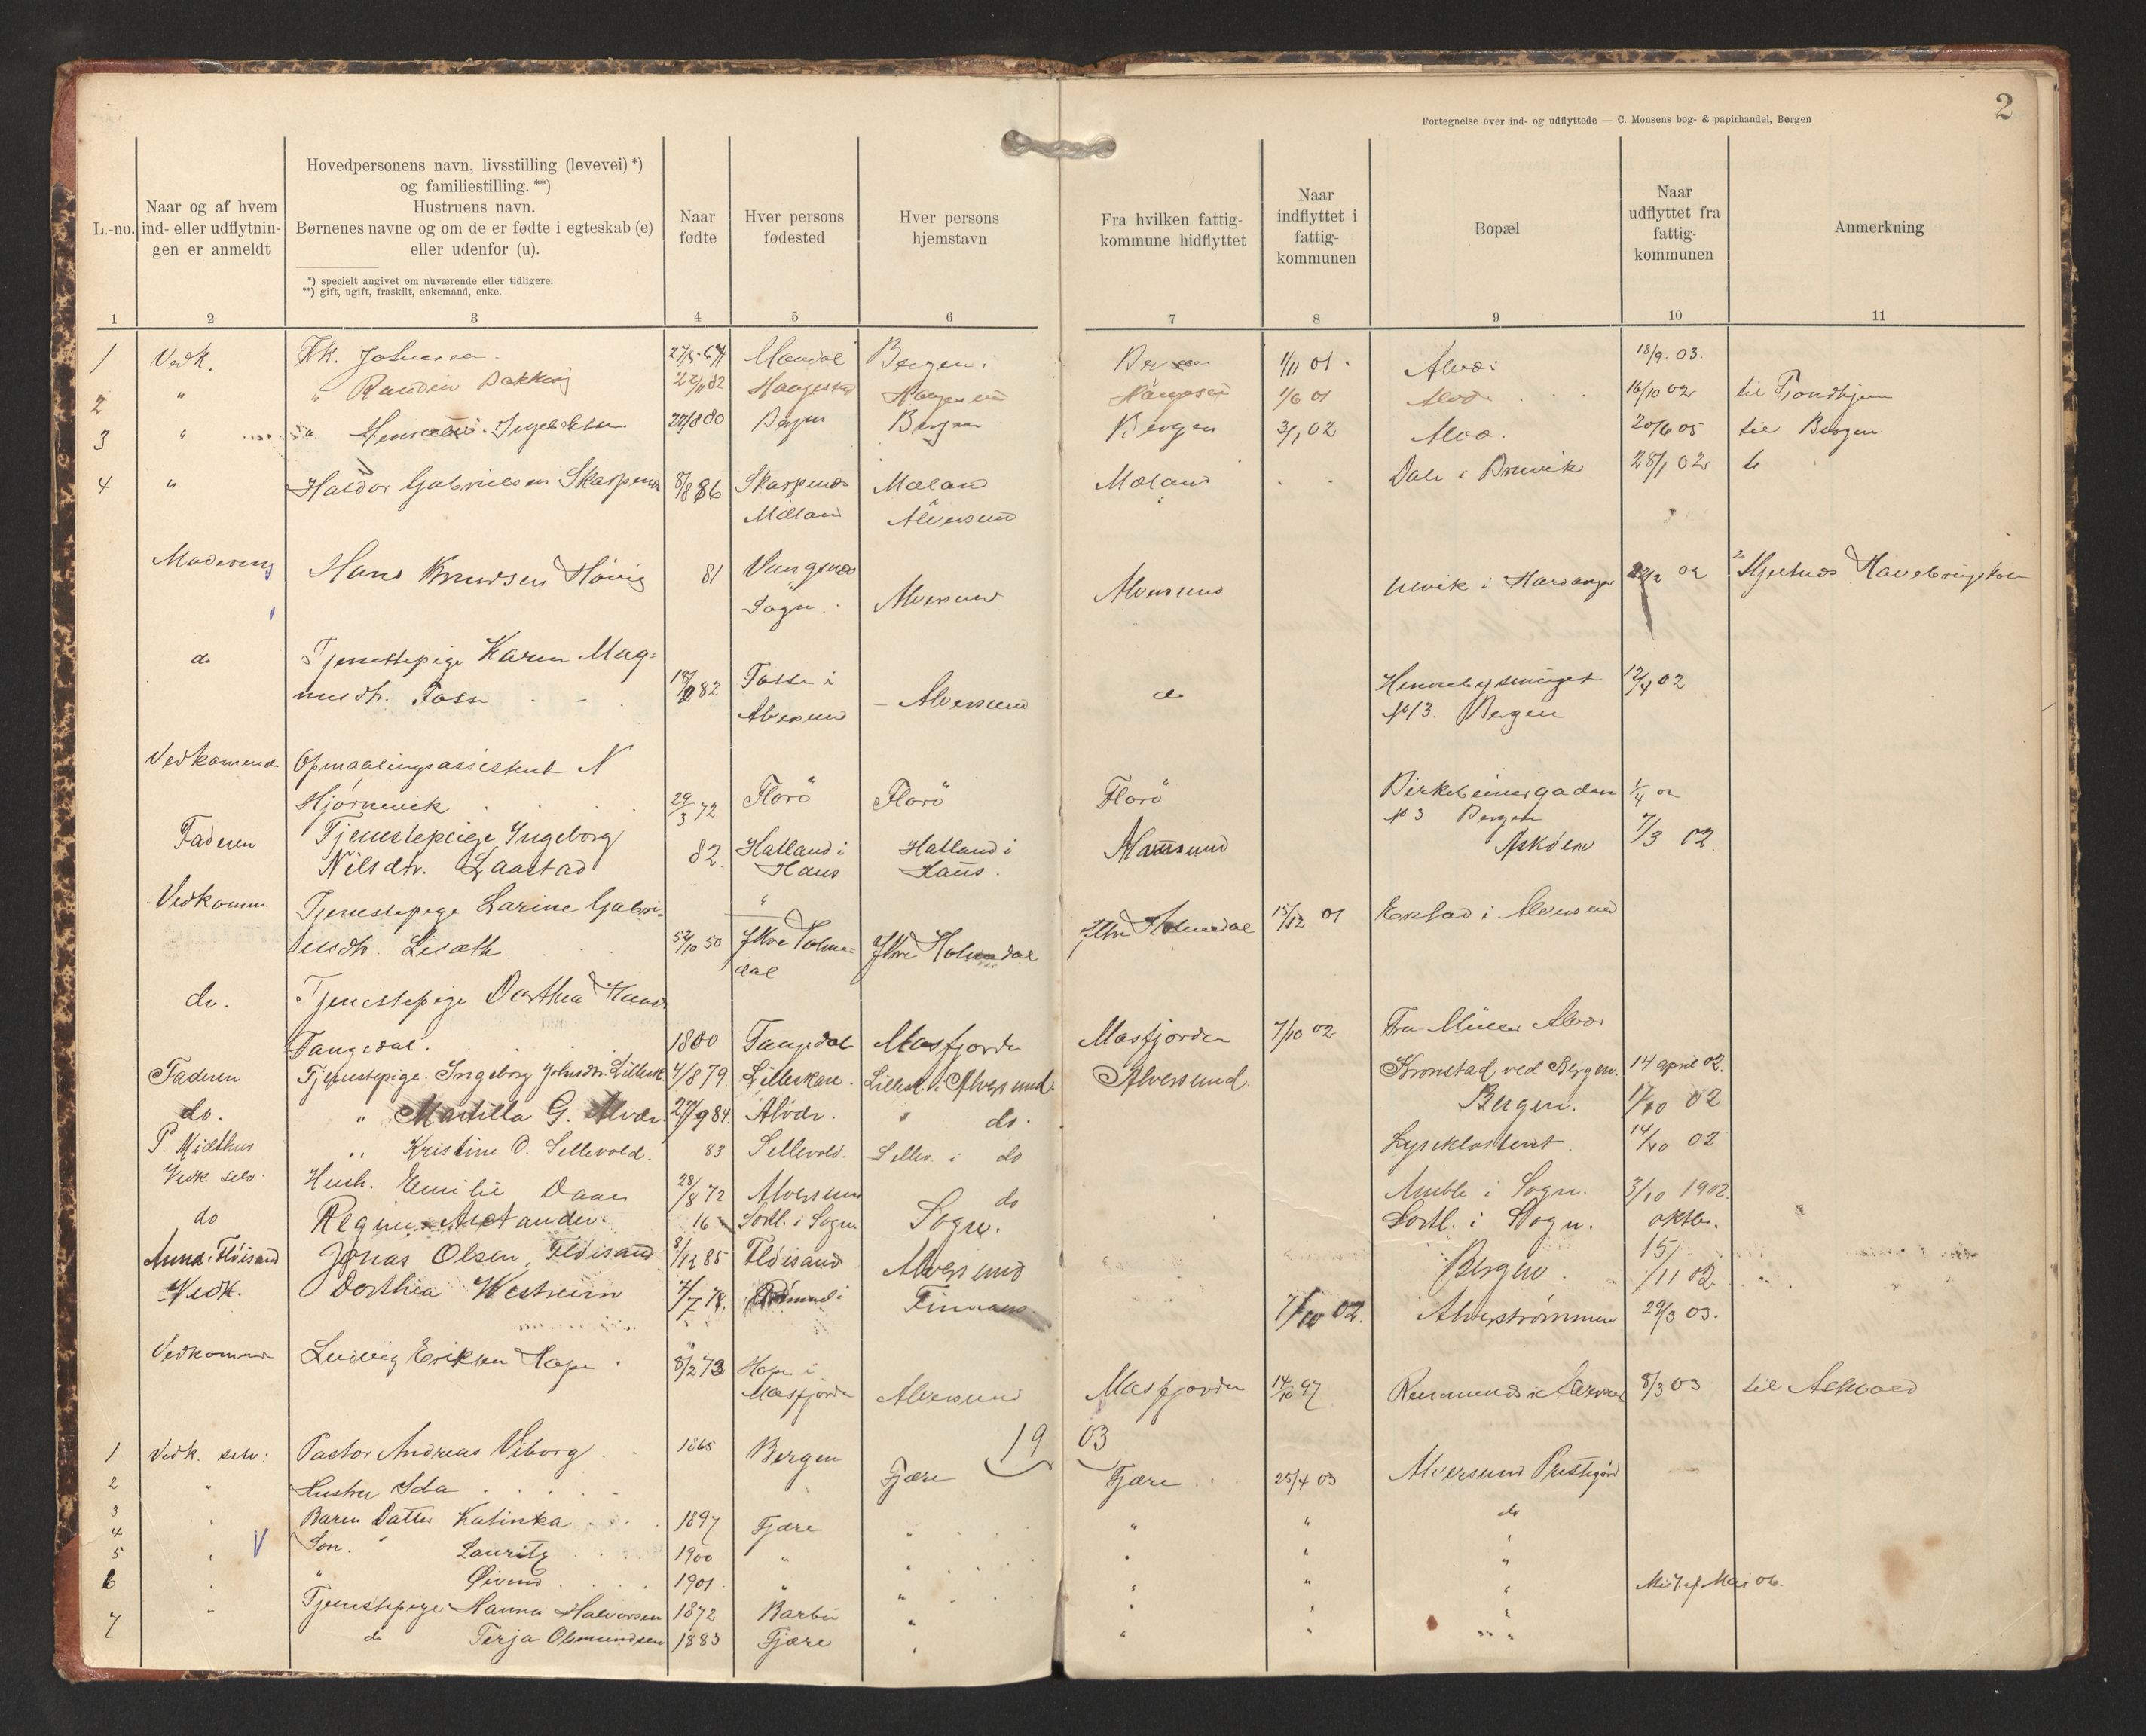 2
Fortegnelse over ind- og udflyttede — C. Monsens bog- & papirhandel, Bergen
L.-no.
Naar og af hvem
ind- eller udflytnin-
gen er anmeldt
Hovedpersonens navn, livsstilling (levevei) *)
og familiestilling. **)
Hustruens navn.
Børnenes navne og om de er fødte i egteskab (e)
eller udenfor (u).
*) specielt angivet om nuværende eller tidligere.
**) gift, ugift, fraskilt, enkemand, enke.
Naar
fødte
Hver persons
fødested
Hver persons
hjemstavn
Fra hvilken fattig-
kommune hidflyttet
Naar
indflyttet i
fattig-
kommunen
Bopæl
Naar
udflyttet fra
fattig-
kommunen
Anmerkning
1 2 3 4 5 6 7 8 9 10 11
1 Vedk. Frk. Johnsen. Mandal Bergen Bergen 1/11 01 Alvø 18/9 03.
2 " " Bakkevig 22/11 82 Haugesund Haugesund Haugesund 1/6 01 Alvø 16/10 02 til Trondhjem
3 " 22/8 80 Bergen Bergen Bergen 3/1 02 Alvø. 20/6 05 til Bergen
4 " Haldor Gabrielsen Skarpenes 8/8 86 Skarpenes Mæland Mæland Dale i Bruvik 28/1 02
Mæland Alversund
Hans Knudsen Høvig 81 Vangsnes Ulvik i Hardanger 02 Hjeltnes Havebrugskole
Sogn. Alversund Alversund
do Tjenestepige Karen Mag-
nusdtr. Fosse 82 Fosse i Alversund do 12/4 02
Alversund No 13. Bergen
Vedkommend Opmaalingsassistent N
Hjørnevik 29/3 72 Florö Florö Florö Birkebeinergaden 1/4 02
No 3 Bergen
Faderen Tjenestepige Ingeborg 82 Hatland i Hatland i Askøen 7/3 02.
Nilsdtr. Laastad Haus Haus.
Vedkomm. Tjenestepige Larine Gabri- 15/12 01 i Alversund
elsdtr. 50 Ytre Holme- Ytre Holmedal Ytre Holmedal
dal
do. Tjenestepige Dorthea Hansd.
Tangedal. 1880 Tangedal Masfjorden Masfjorden 7/10 02 Fru Müller Alvær
Faderen Tjenestepige. Ingeborg Johnsdtr. Lillesk. 4/8 79. Lilleskare. Lillesk. i Alversund. Alversund. Kronstad ved Bergen. 14 april 02.
do. " Martilla G. Alvær. 27/9 84. Alvær. " do. Bergen. 1/10 02
P. Midthus " Kristine O. Sellevold. 83 Sellevold. Sellev. i do Lyseklosteret. 14/10 02
Vedk. selv. Hush. Emilie Daae 28/8 72 Alversund do Amble i Sogn. 3/10 1902.
do 16 Sortl. i Sogn Sogn. Sortl. i Sogn. oktbr.
Anna Fløisand Jonas Olsen Fløisand 8/12 85 Fløisand Alversund Bergen. 15/11 02
Vedk. Dorthea Westreim 7/7 78. Finnaas 7/10 02. Alverstrømmen 29/3 03.
Vedkommende Ludvig Eriksen Hope 8/2 73 Hope i
Masfjorden Alversund Masfjorden 14/10 97 8/3 03 til Askvold
1903
1 Vedk. selv: Pastor Andreas Viborg 1865 Bergen Fjære Fjære 25/4 03 Alversund Prestegård
2 " Hustru Ida
3 " Barn Datter Katinka 1897 Fjære " " " do
4 Søn. Lauritz 1900 " " " " "
5
6 " Øivind 1901 " " " " " Midt af Mai 06.
" Tjenestepige Hanna Halvorsen 1872 Barbu " " " "
7 do Terja Olsmundsen 1883 Fjære " " " "